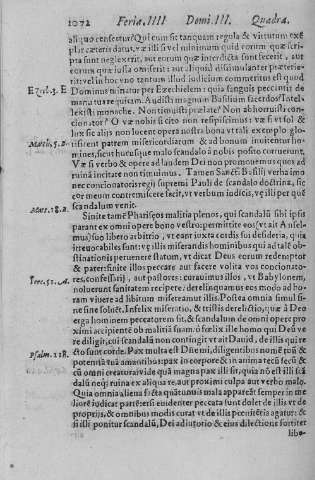 1072 Feria. IIII Domi. III. Quadra.
aliquo censetur? Qui eum sit tanquam regula & virtutum exẽ
plar cæteris datur, væ illi si vel minimum quid eorum quæ scri-
pta sunt neglexerit, aut eorum quæ interdicta sunt fecerit, aut
eorum quæ iussa omiserit: aut aliquid dissimulanter præterie-
rit vel in hoc vno tantum illud iudicium committi est quod
Ezec. 3. E Dominus minatur per Ezechielem: quia sanguis peccantis de
manu tua requiram. Audisti magnum Basilium sacerdos? Intel-
lexisti monache. Non timuisti prælate? Non abhorruisti con-
cionator? O væ nobis si cito non respiscimus: væ si vt sol &
lux sic aliis non lucent opera nostra bona vt tali exemplo glo-
Matth. 5. B. rificent patrem misericordiarum & ad bonum inuitentur ho-
mines, sicut hucusque malo scandalo à nobis posito corruerunt.
Væ si verbo & opere ad laudem Dei non promouemus quos ad
ruinã incitare non timuimus. Tamen Sancti Basilij verba imo
nec concionatoris regij supremi Pauli de scandalo doctrina, sic
eor meum contremiscere fecit, vt verbum iudicis, væ illi per quẽ
Mat. 18. a. scandalum venit.
Sinite tamẽ Phariseos malitia plenos, qui scandalũ sibi ipsis
parant ex omni opere bono vestro: permittite eos (vt ait Ansel-
mus) suo libero arbitrio, vt eant iuxta cordis sui desideria, quia
irreuocabiles sunt: væ illis miserandis hominibus qui ad talẽ ob-
stinationis peruenere statum, vt dicat Deus eorum redemptor
& pater: sinite illos peccare aut facere volita voz concionato-
Iere. 51. A. res, confessarij, aut pastores: curauimus illos, vt Babylonem,
noluerunt sanitatem recipere: derelinquamus eos modo ad ho-
ram viuere ad libitum misereamur illis. Postea omnia simul si-
ne sine soluẽt. Infelix miseratio, & tristis derelictio, quæ à Deo
erga hominem peccatorem sit, & scandalum de omni opere pro
ximi accipientẽ ob malitiã suam. ô foelix ille homo qui Deũ ve
re diligit, cui scandalũ non contingit vt ait Dauid, de illis qui re
Psalm. 118. cto sunt corde. Pax multa est Dñe mi, diligentibus nomẽ tuũ &
potentiã tuã amantibus: pax in corpore & in anima tecũ secũ &
cũ omni creatura: vide quã magna pax illi sit, quia nõ est illi scã
dalũ neq; ruina ex aliqua re, aut proximi culpa aut verbo malo.
Quia omnia aliena facta quãtunuis mala appareãt semper in me
liorẽ iudicat partẽ: et si euidenter peccata sunt dolet de illis vt de
proprijs, & omnibus modis curat vt de illis pœnitẽtia agatur: &
si illi ponitur scandalũ, Dei adiutorio & eius dilectione fortiter
libe-